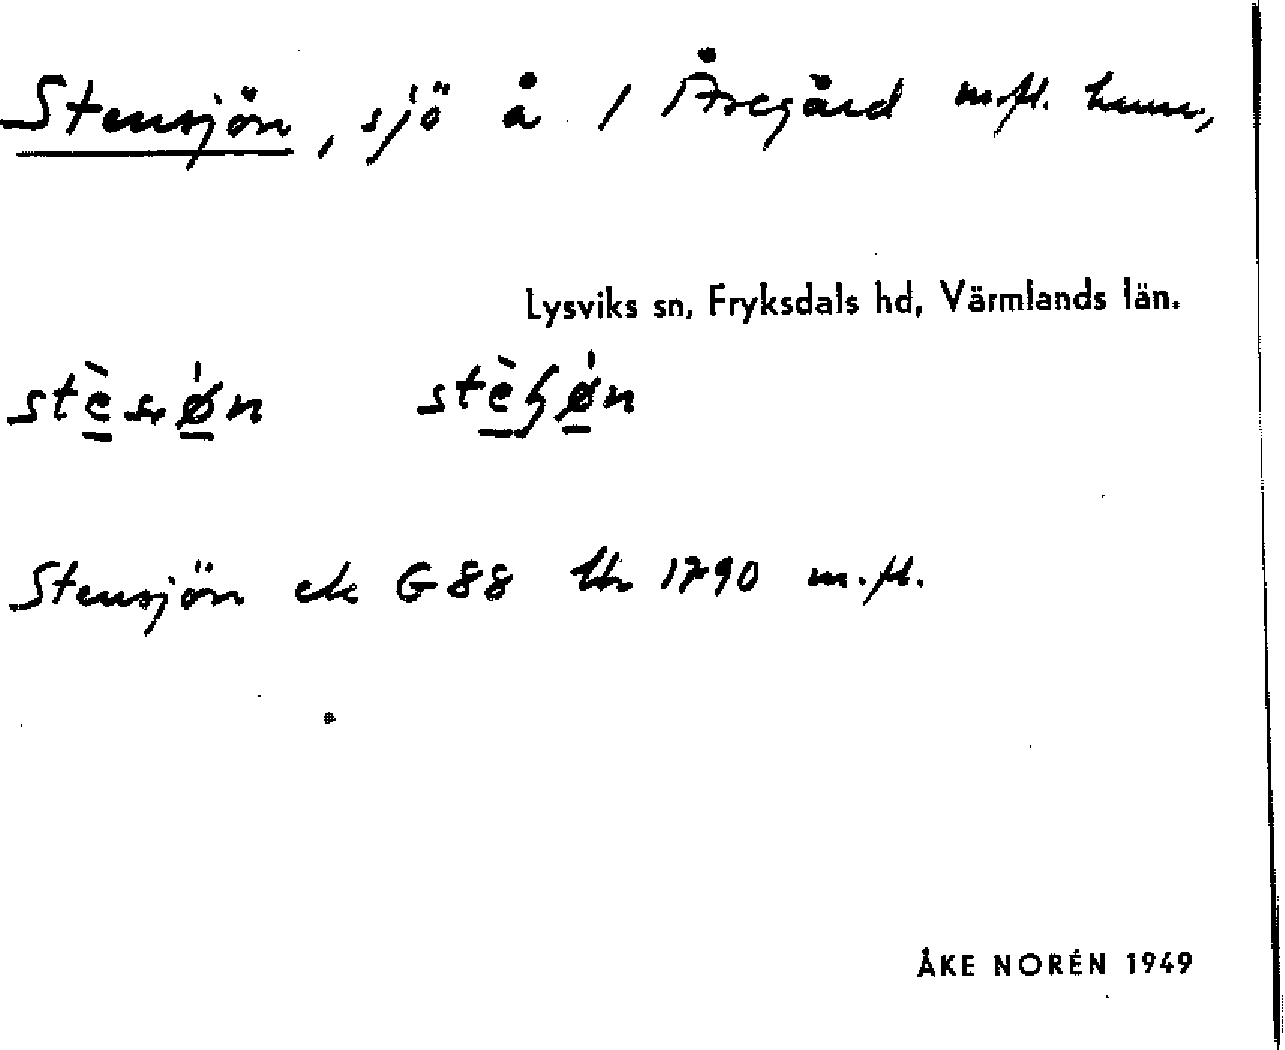 Stensjön, sjö å / Åregård m.fl. hmn,
Lysviks sn, Fryksdals hd, Värmlands län.
Stensjön ek G 88 Ltr 1790 m.fl.
ÅKE NORÉN 1949